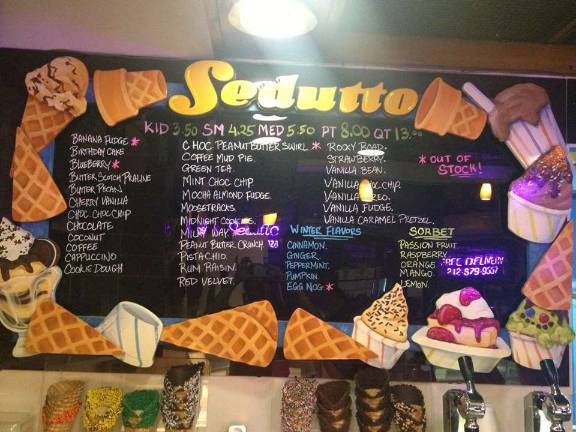 Sedutto
KID 3.50 SM 4.25 MED 5.50 PT 8.00 QT 13.00
BANANA FUDGE. *
BIRTHDAY CAKE
BLUEBERRY *
BUTTER SCOTCH PRALINE
BUTTER PECAN.
CHERRY VANILLA
CHOC CHOC CHIP
CHOCOLATE
COCONUT
COFFEE
CAPPUCCINO
COOKIE DOUGH
CHOC PEANUT BUTTER SWIRL *
COFFEE MUD PIE.
GREEN TEA.
MINT CHOC CHIP
MOCHA ALMOND FUDGE.
MOOSETRACKS.
MIDNIGHT COOKIES.
MILKY WAY.
PEANUT BUTTER CRUNCH
PISTACHIO.
RUM RAISIN.
RED VELVET.
ROCKY ROAD.
STRAWBERRY.
VANILLA BEAN.
VANILLA CHOC CHIP.
VANILLA OREO.
VANILLA FUDGE.
VANILLA CARAMEL PRETZEL.
* OUT OF
STOCK!
WINTER FLAVORS
CINNAMON.
GINGER.
PEPPERMINT.
PUMPKIN.
EGG NOG *
SORBET
PASSION FRUIT.
RASPBERRY
ORANGE.
MANGO.
LEMON.
FREE DELIVERY